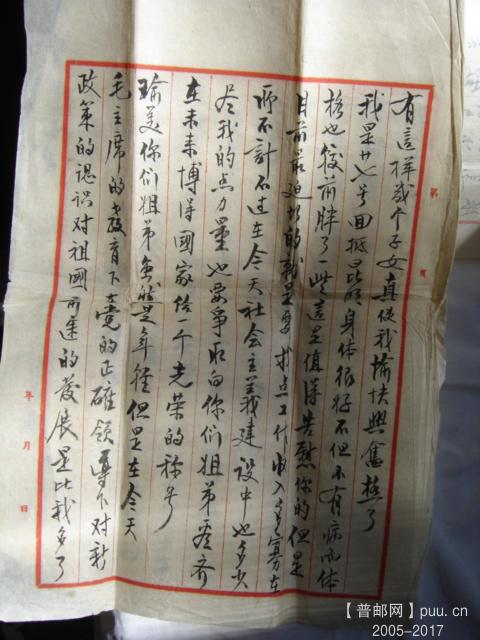 有這样或个子女真使我愉快興奮極了
我是廿七号回抵昆明身体很好不但不有病而体
格也較前胖了一些這是值得告慰你的但是
目前最迫切的就是要找点工作收入多寡在
所不計不过在今天社会主義建设中也多少
尽我的点力量也要爭取向你们姐弟看齐
在未来博得國家给一个光荣的称号
瑜美你们姐弟虽然是年轻但是在今天
毛主席的教育下党的正確領導下对新
政策的認识对祖國前途的發展是比我多了
年 月 日
【普邮网】puu.cn
2005-2017